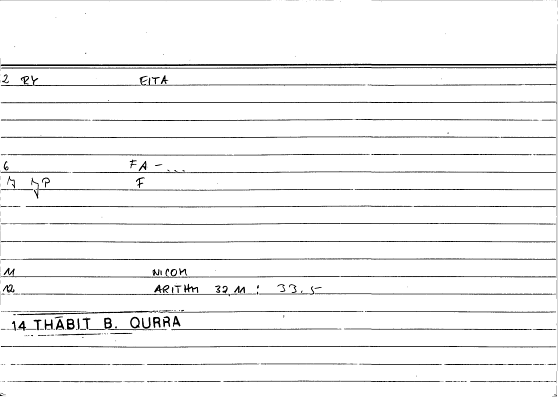 2 RY EITA
6 FA - ...
7 F
11 NICOM
12 ARITHM 32,11 : 33.5
14 THĀBIT B. QURRA